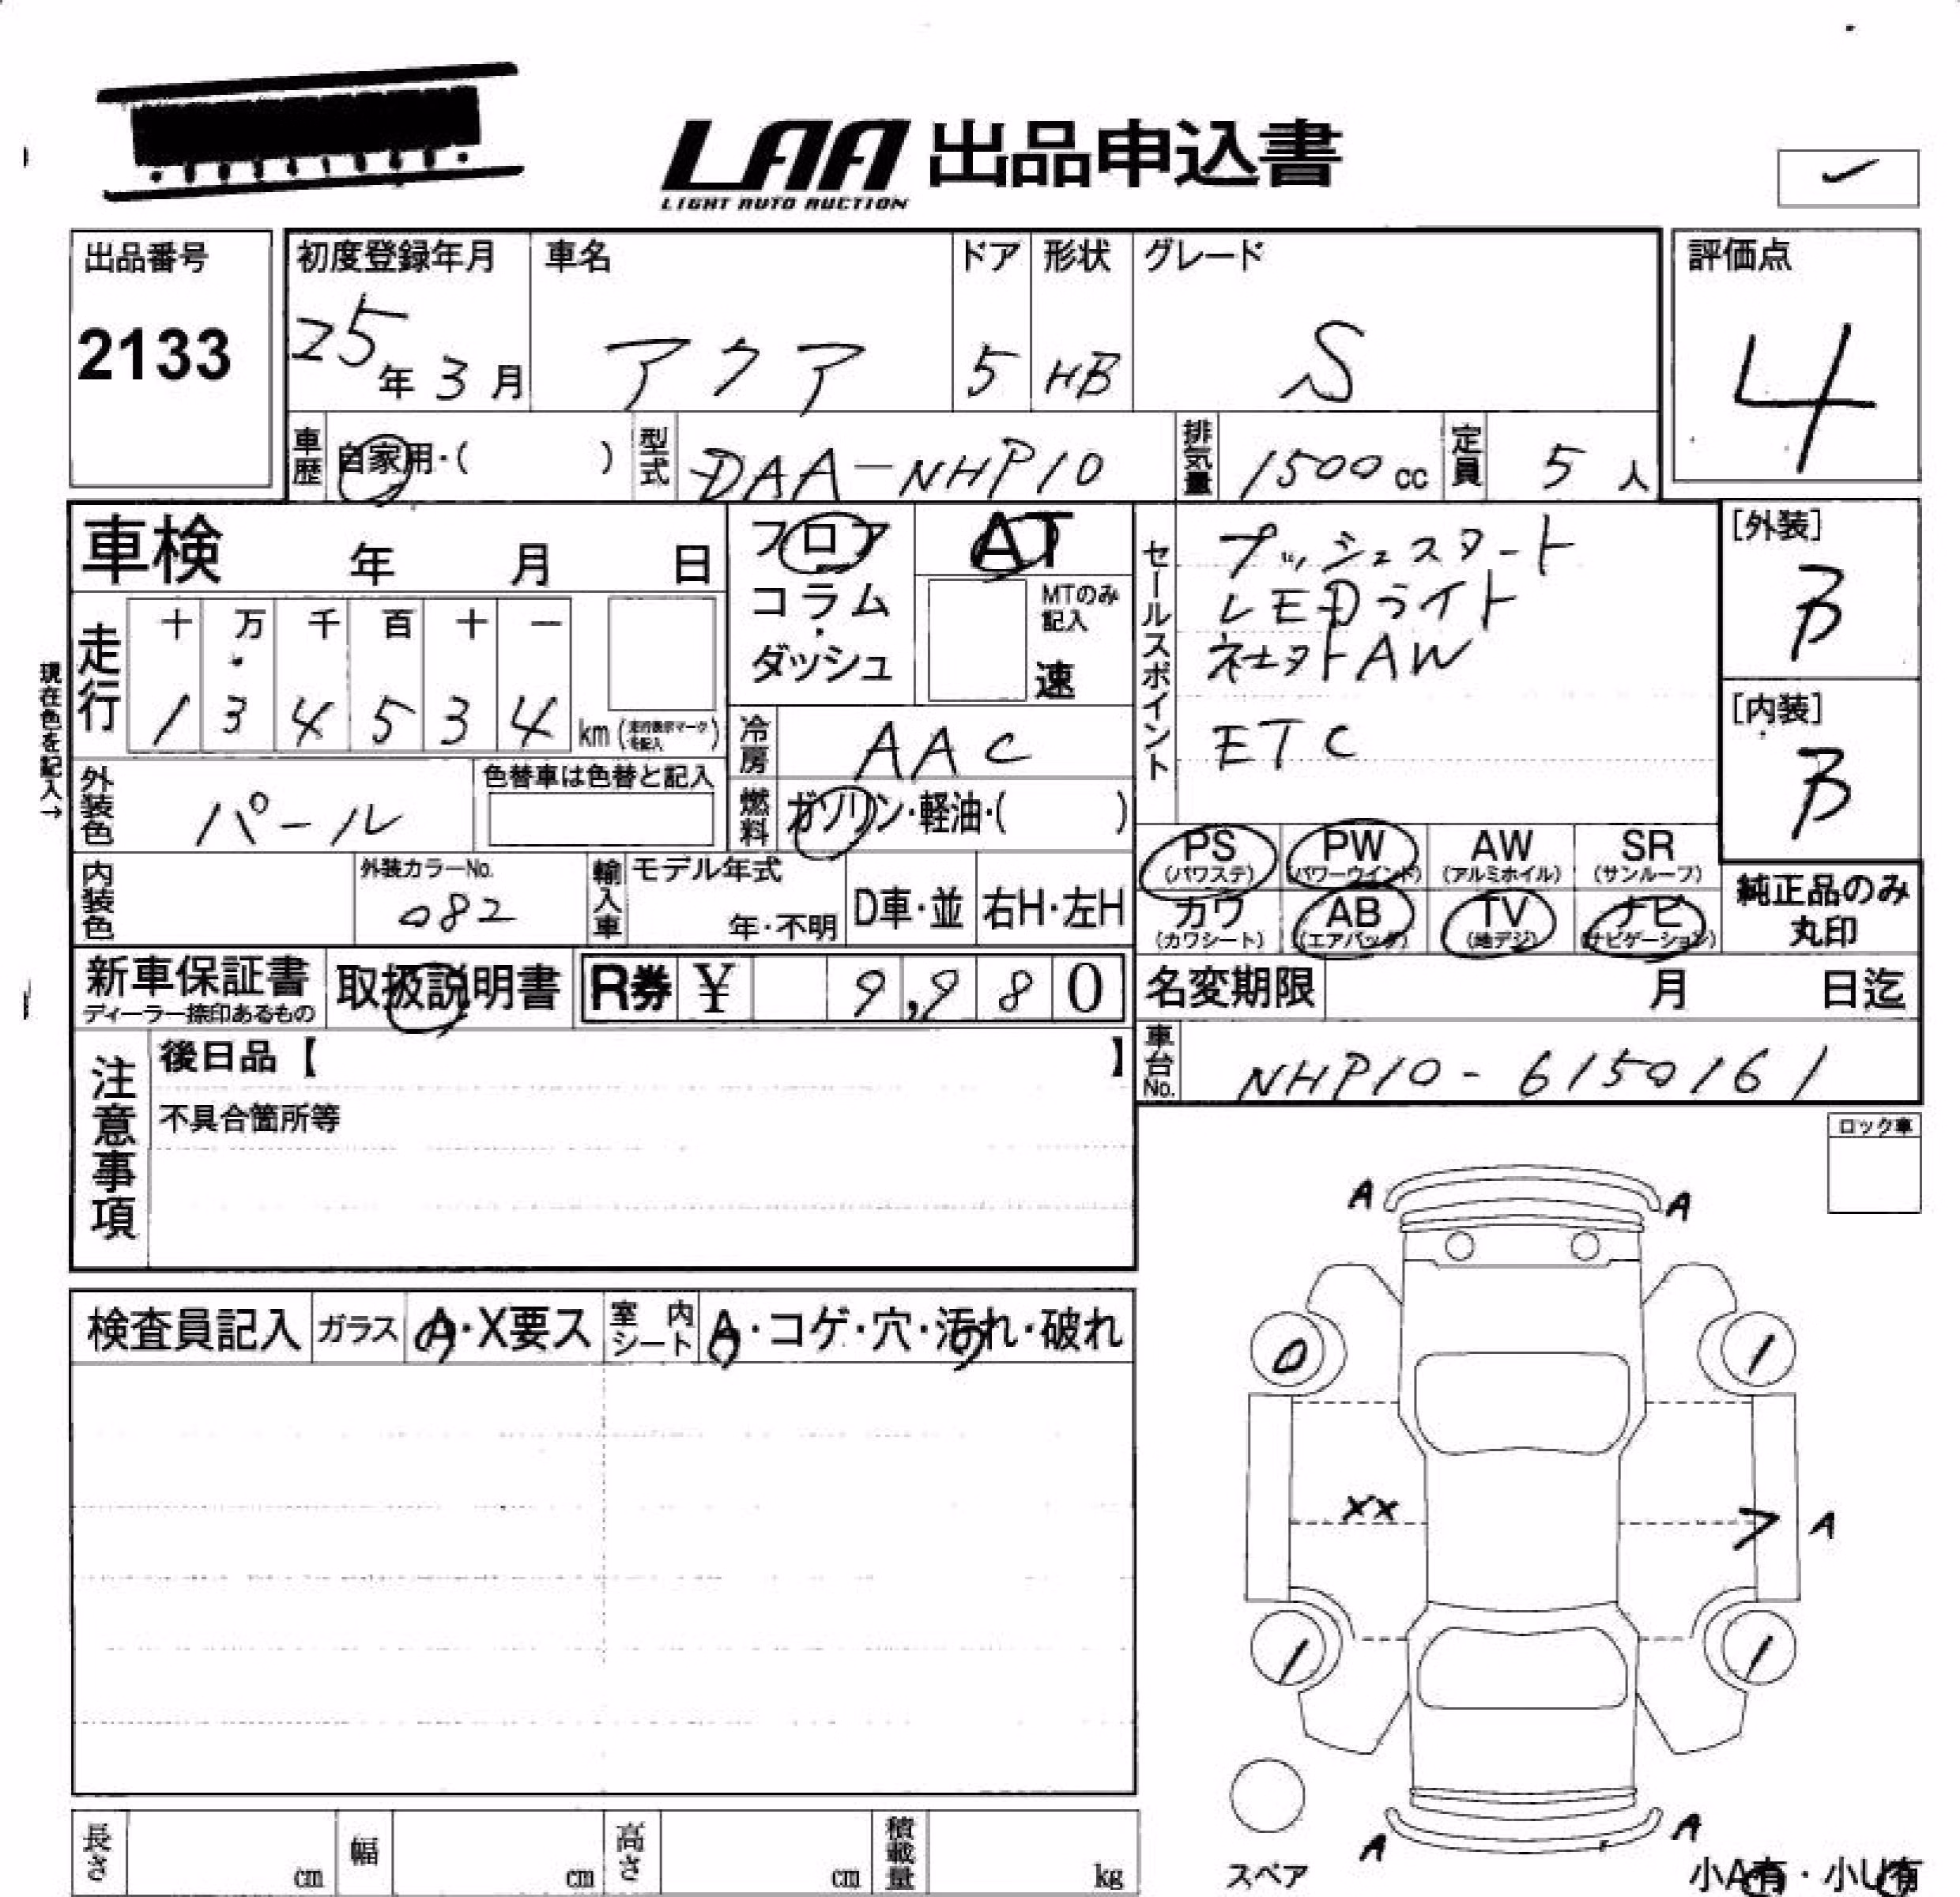 LAA 出品申込書
LIGHT AUTO AUCTION
✓
出品番号
2133
初度登録年月
25年 3月
車名
アクア
ドア
5
形状
HB
グレード
S
評価点
4
車歴
自家用・( )
型式
DAA-NHP10
排気量
1500 cc
定員
5 人
車検 年 月 日
フロア
コラム
・
ダッシュ
AT
MTのみ
記入
速
セールスポイント
プッシュスタート
LEDライト
社外AW
ETC
[外装]
B
[内装]
B
現在色を記入→
走行
十 万 千 百 十 一
1 3 4 5 3 4 km (走行表示マークを記入)
冷房
AAC
燃料
ガソリン・軽油・( )
外装色
パール
色替車は色替と記入
内装色
外装カラーNo.
082
輸入車
モデル年式
年・不明
D車・並
右H・左H
PS
(パワステ)
PW
(パワーウインド)
AW
(アルミホイル)
SR
(サンルーフ)
カワ
(カワシート)
AB
(エアバッグ)
TV
(地デジ)
ナビ
(ナビゲーション)
純正品のみ
丸印
新車保証書
ディーラー捺印あるもの
取扱説明書
R券 ¥ 9,980
名変期限 月 日迄
車台No.
NHP10-6150161
注意事項
後日品【 】
不具合箇所等
ロック車
検査員記入
ガラス
A・X要ス
室内
シート
A・コゲ・穴・汚れ・破れ
A A
0 1
XX
A
1 1
A A
スペア
小A有・小U有
長さ cm
幅 cm
高さ cm
積載量 kg